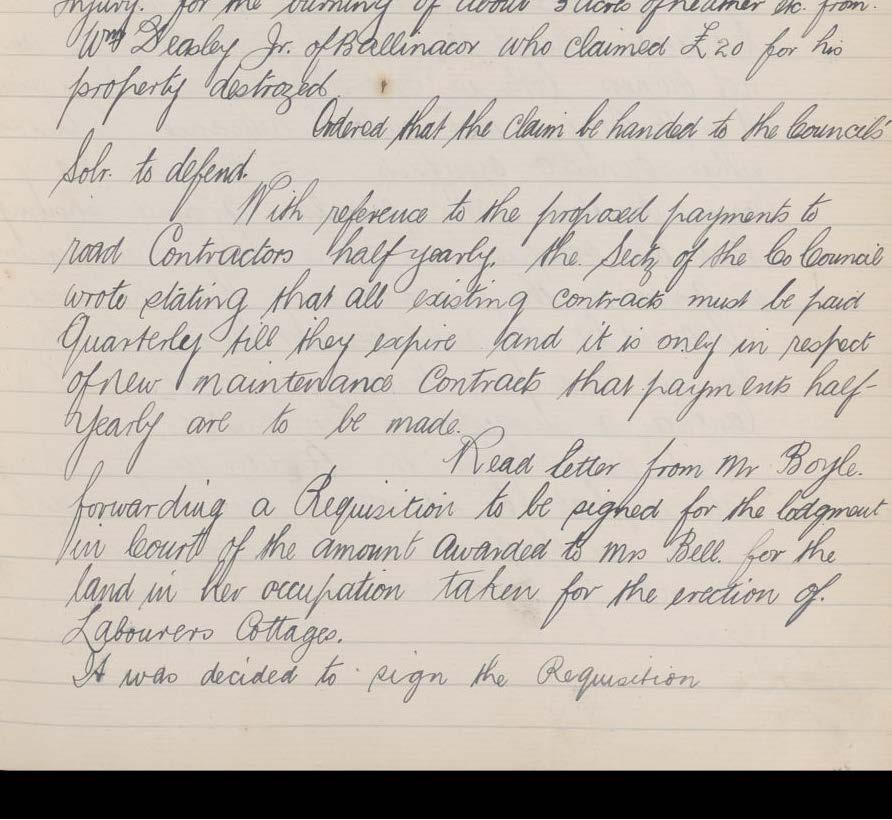 Injury. for the burning of about 3 acres of heather etc. from.
Wm Deasley Jr. of Ballinacor who claimed £20 for his
property destroyed.
Ordered that the claim be handed to the Councils'
Solr. to defend.
With reference to the proposed payments to
road Contractors half yearly. the Secty of the Co Council
wrote stating that all existing contracts must be paid
Quarterley till they expire and it is only in respect
of new maintenance Contracts that payments half-
Yearly are to be made.
Read letter from Mr Boyle.
forwarding a Requisition to be signed for the lodgment
in Court of the amount awarded to Mrs Bell. for the
land in her occupation taken for the erection of.
Labourers Cottages.
It was decided to sign the Requisition